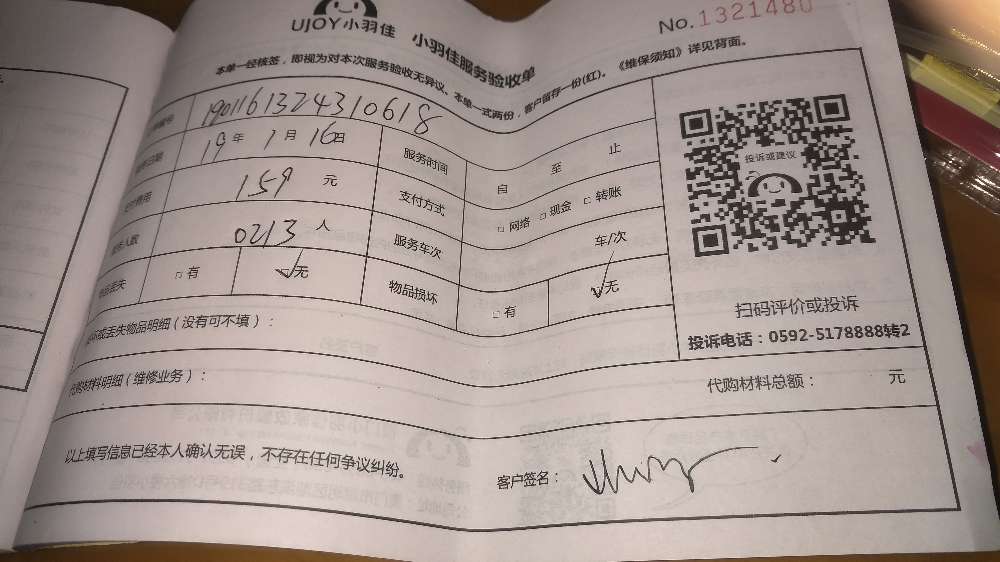 UJOY小羽佳 小羽佳服务验收单
No.1321480
本单一经核签，即视为对本次服务验收无异议。本单一式两份，客户留存一份(红)。《维保须知》详见背面。
1901161324310618
19年 1月 16日 服务时间 自 至 止
159 元 支付方式 □网络 □现金 □转账
0213 人 服务车次 车/次
□有 ☑无 物品损坏 □有 ☑无
投诉或建议
扫码评价或投诉
投诉电话：0592-5178888转2
丢失物品明细（没有可不填）：
代购材料明细（维修业务）： 代购材料总额： 元
以上填写信息已经本人确认无误，不存在任何争议纠纷。 客户签名：